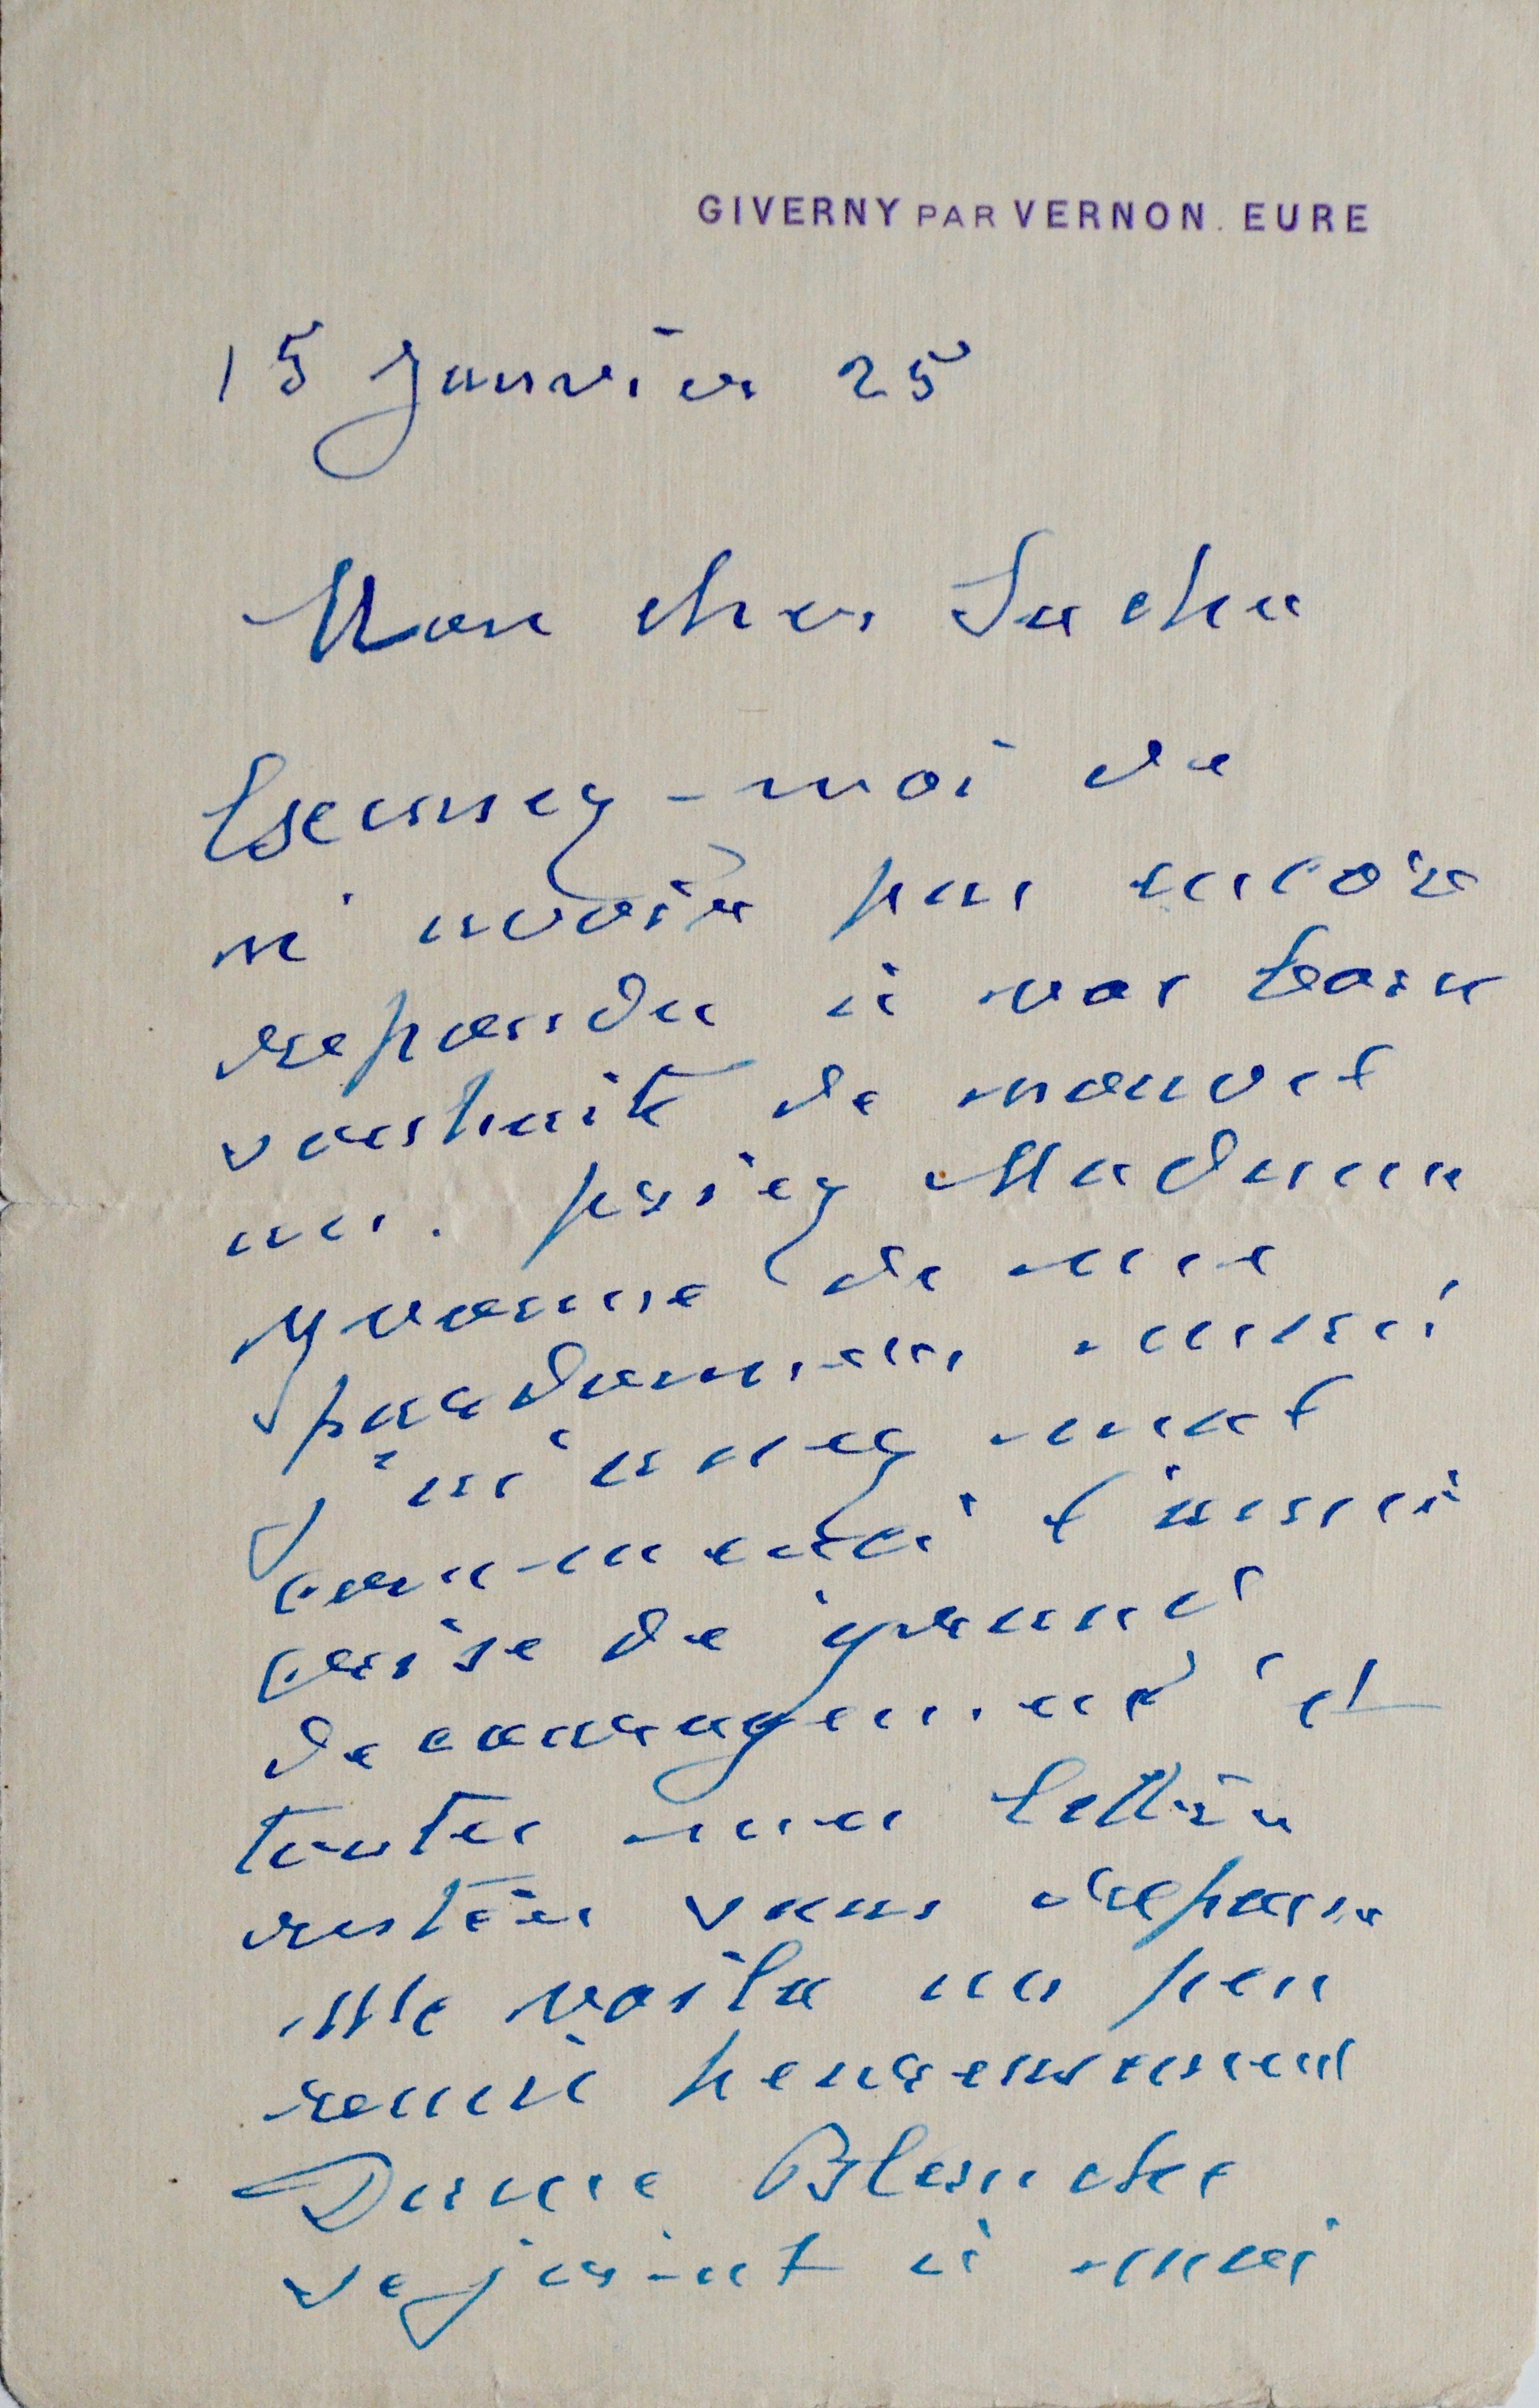 GIVERNY PAR VERNON. EURE
15 Janvier 25
Mon cher Sacha
Excusez-moi de
n'avoir pas encore
repondu à vos bons
souhaits de nouvel
an. priez Madame
Yvonne de me
pardonner aussi
j'ai assez mal
commencé l'année
crise de grand
decouragement et
toutes mes lettres
restées sans repons
Me voila un peu
remis heureusement
Dame Blanche
se joint à moi